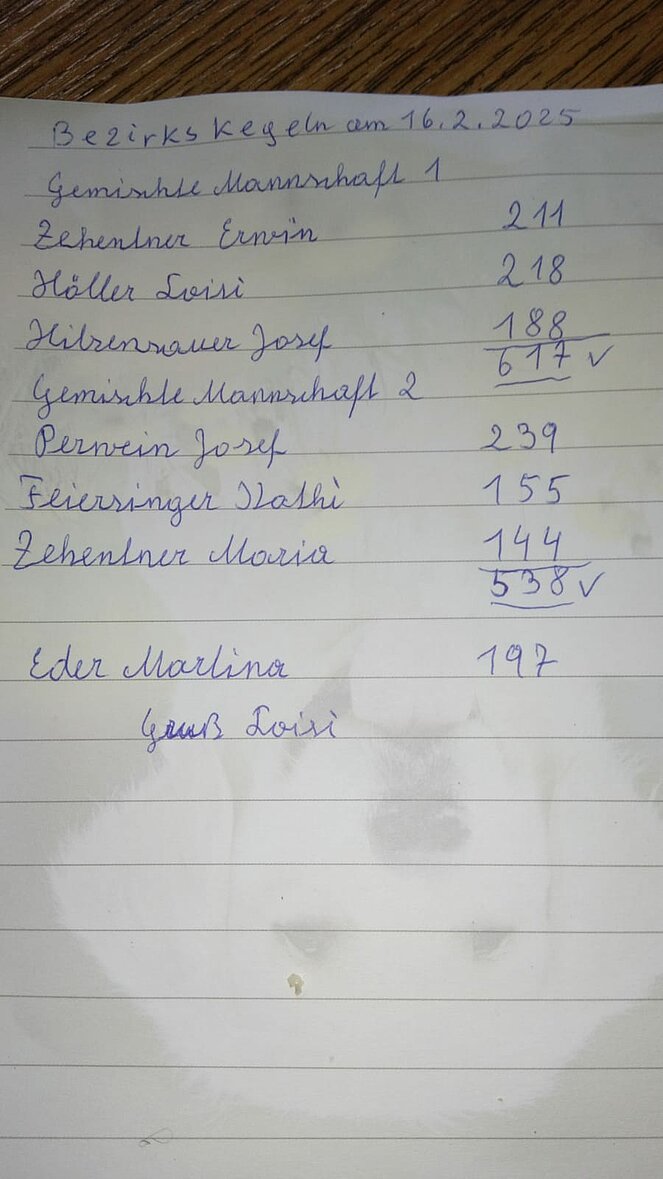 Bezirkskegeln am 16.2.2025
Gemischte Mannschaft 1
Zehentner Erwin 211
Höller Loisi 218
Hilzensauer Josef 188
617 ✓
Gemischte Mannschaft 2
Perwein Josef 239
Feiersinger Kathi 155
Zehentner Maria 144
538 ✓
Eder Martina 197
Gruß Loisi